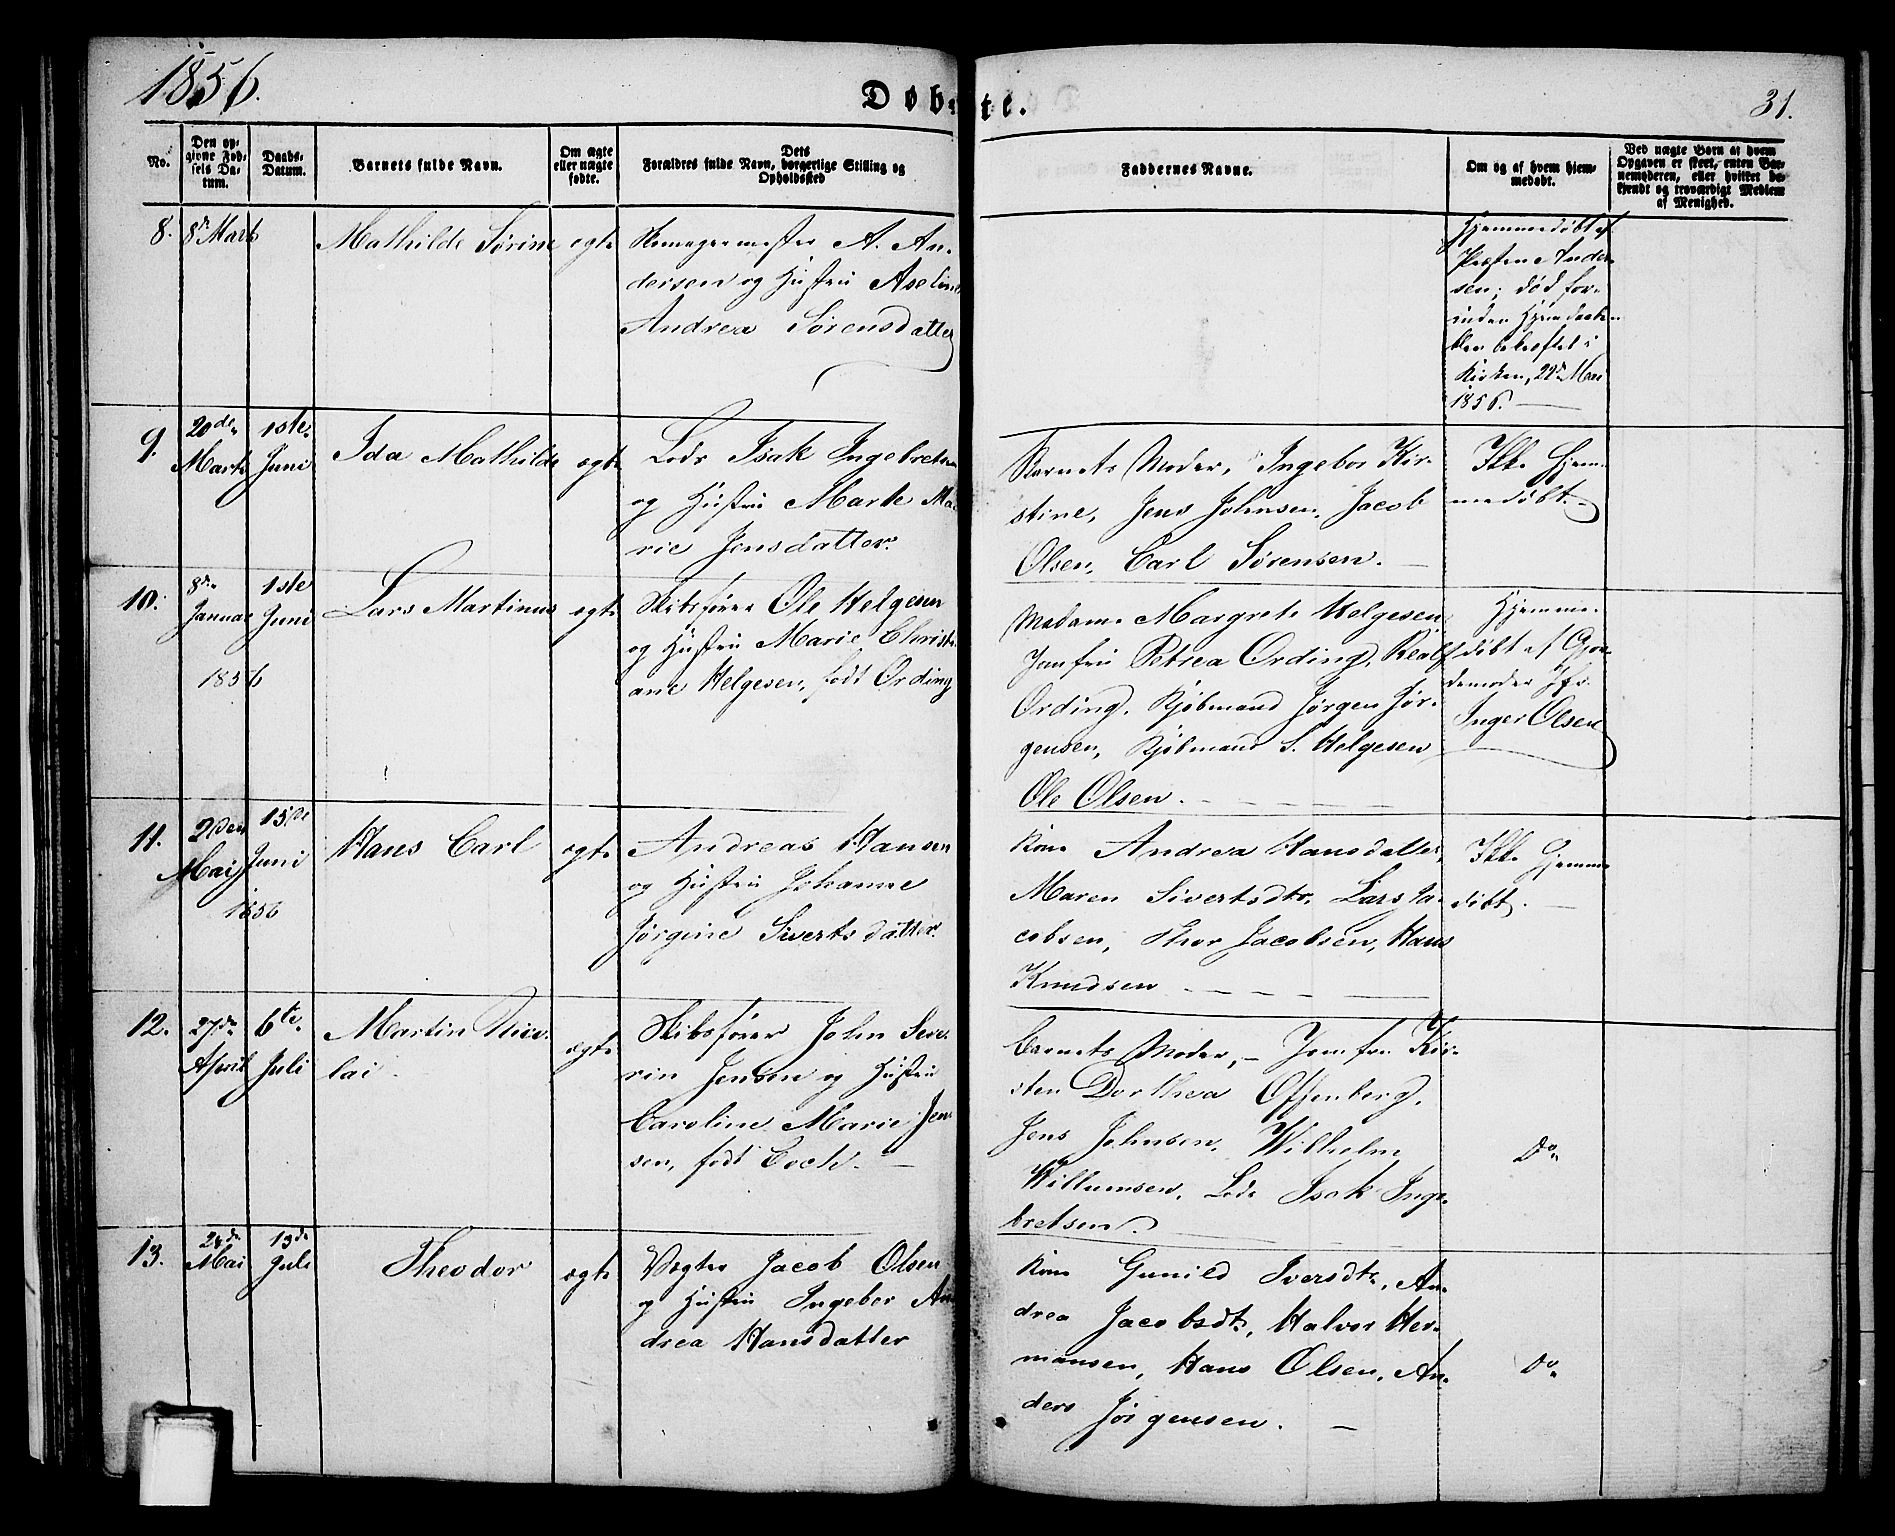 1856.
Døbte.
31.
No.
Den op-
givne Fød-
sels Da-
tum.
Daabs-
Datum.
Barnets fulde Navn.
Om ægte
eller uægte
fødte.
Dets
Forældres fulde Navn, borgerlige Stilling og
Opholdssted
Faddernes Navne.
Om og af hvem hjem-
medøbt.
Ved uægte Børn af hvem
Opgaven er skeet, enten Bar-
nemoderen, eller hvilket be-
kjendt og troværdigt Medlem
af Menighed.
8.
8de Marts
Mathilde Sørine
egte
A. An-
dersen og Hustru Aseline
Andrea Sørensdatter
Hjemmedøbt af
Præsten Ander-
sen; død for-
inden Hjemdaaben
blev bekræftet i
Kirken, 22de Mai
1856.
9.
20de
Marts
1ste
Juni
Ida Mathilde
ægte
Lods Isak Ingebretsen
og Hustru Marte Ma-
rie Jensdatter.
Barnets Moder, Ingebor Kir-
stine, Jens Johnsen, Jacob
Olsen, Carl Sørensen.
Ikke Hjem-
medøbt.
10.
8de
Januar
1856
1ste
Juni
Lars Martinus
egte
Skibsfører Ole Helgesen
og Hustru Marie Christi-
ane Helgesen, født Ording
Madame Margrete Helgesen,
Jomfru Petrea Ording, Realf
Ording, Kjøbmand Jørgen Jør-
gensen, Kjøbmand S. Helgesen
Ole Olsen.
Hjemme-
døbt af Gjor-
demoder Jfr.
Inger Olsen
11.
2den
Mai
1856
15de
Juni
Hans Carl
egte
Andreas Hansen
og Hustru Johanne
Jørgine Sivertsdatter.
Kone Andrea Hansdatter,
Maren Sivertsdtr, Lars Ja-
cobsen, Thor Jacobsen, Hans
Knudsen
Ikke Hjemme
døbt.
12.
27de
April
6te
Juli
Martin Nico-
lai
ægte
Skibsfører John Seve-
rin Jensen og Hustru
Caroline Marie Jen-
sen, født Cock.
Barnets Moder, Jomfru Kir-
sten Dorthea Offenberg,
Jens Johnsen, Wilhelm
Willumsen, Lods Isak Inge-
bretsen.
Do
13.
24de
Mai
13de
Juli
Theodor
ægte
Vægter Jacob Olsen
og Hustru Ingebor An-
drea Hansdatter
Kone Gunild Iversdtr, An-
drea Jacobsdtr, Halvor Her-
mansen, Hans Olsen, An-
ders Jørgensen.
Do